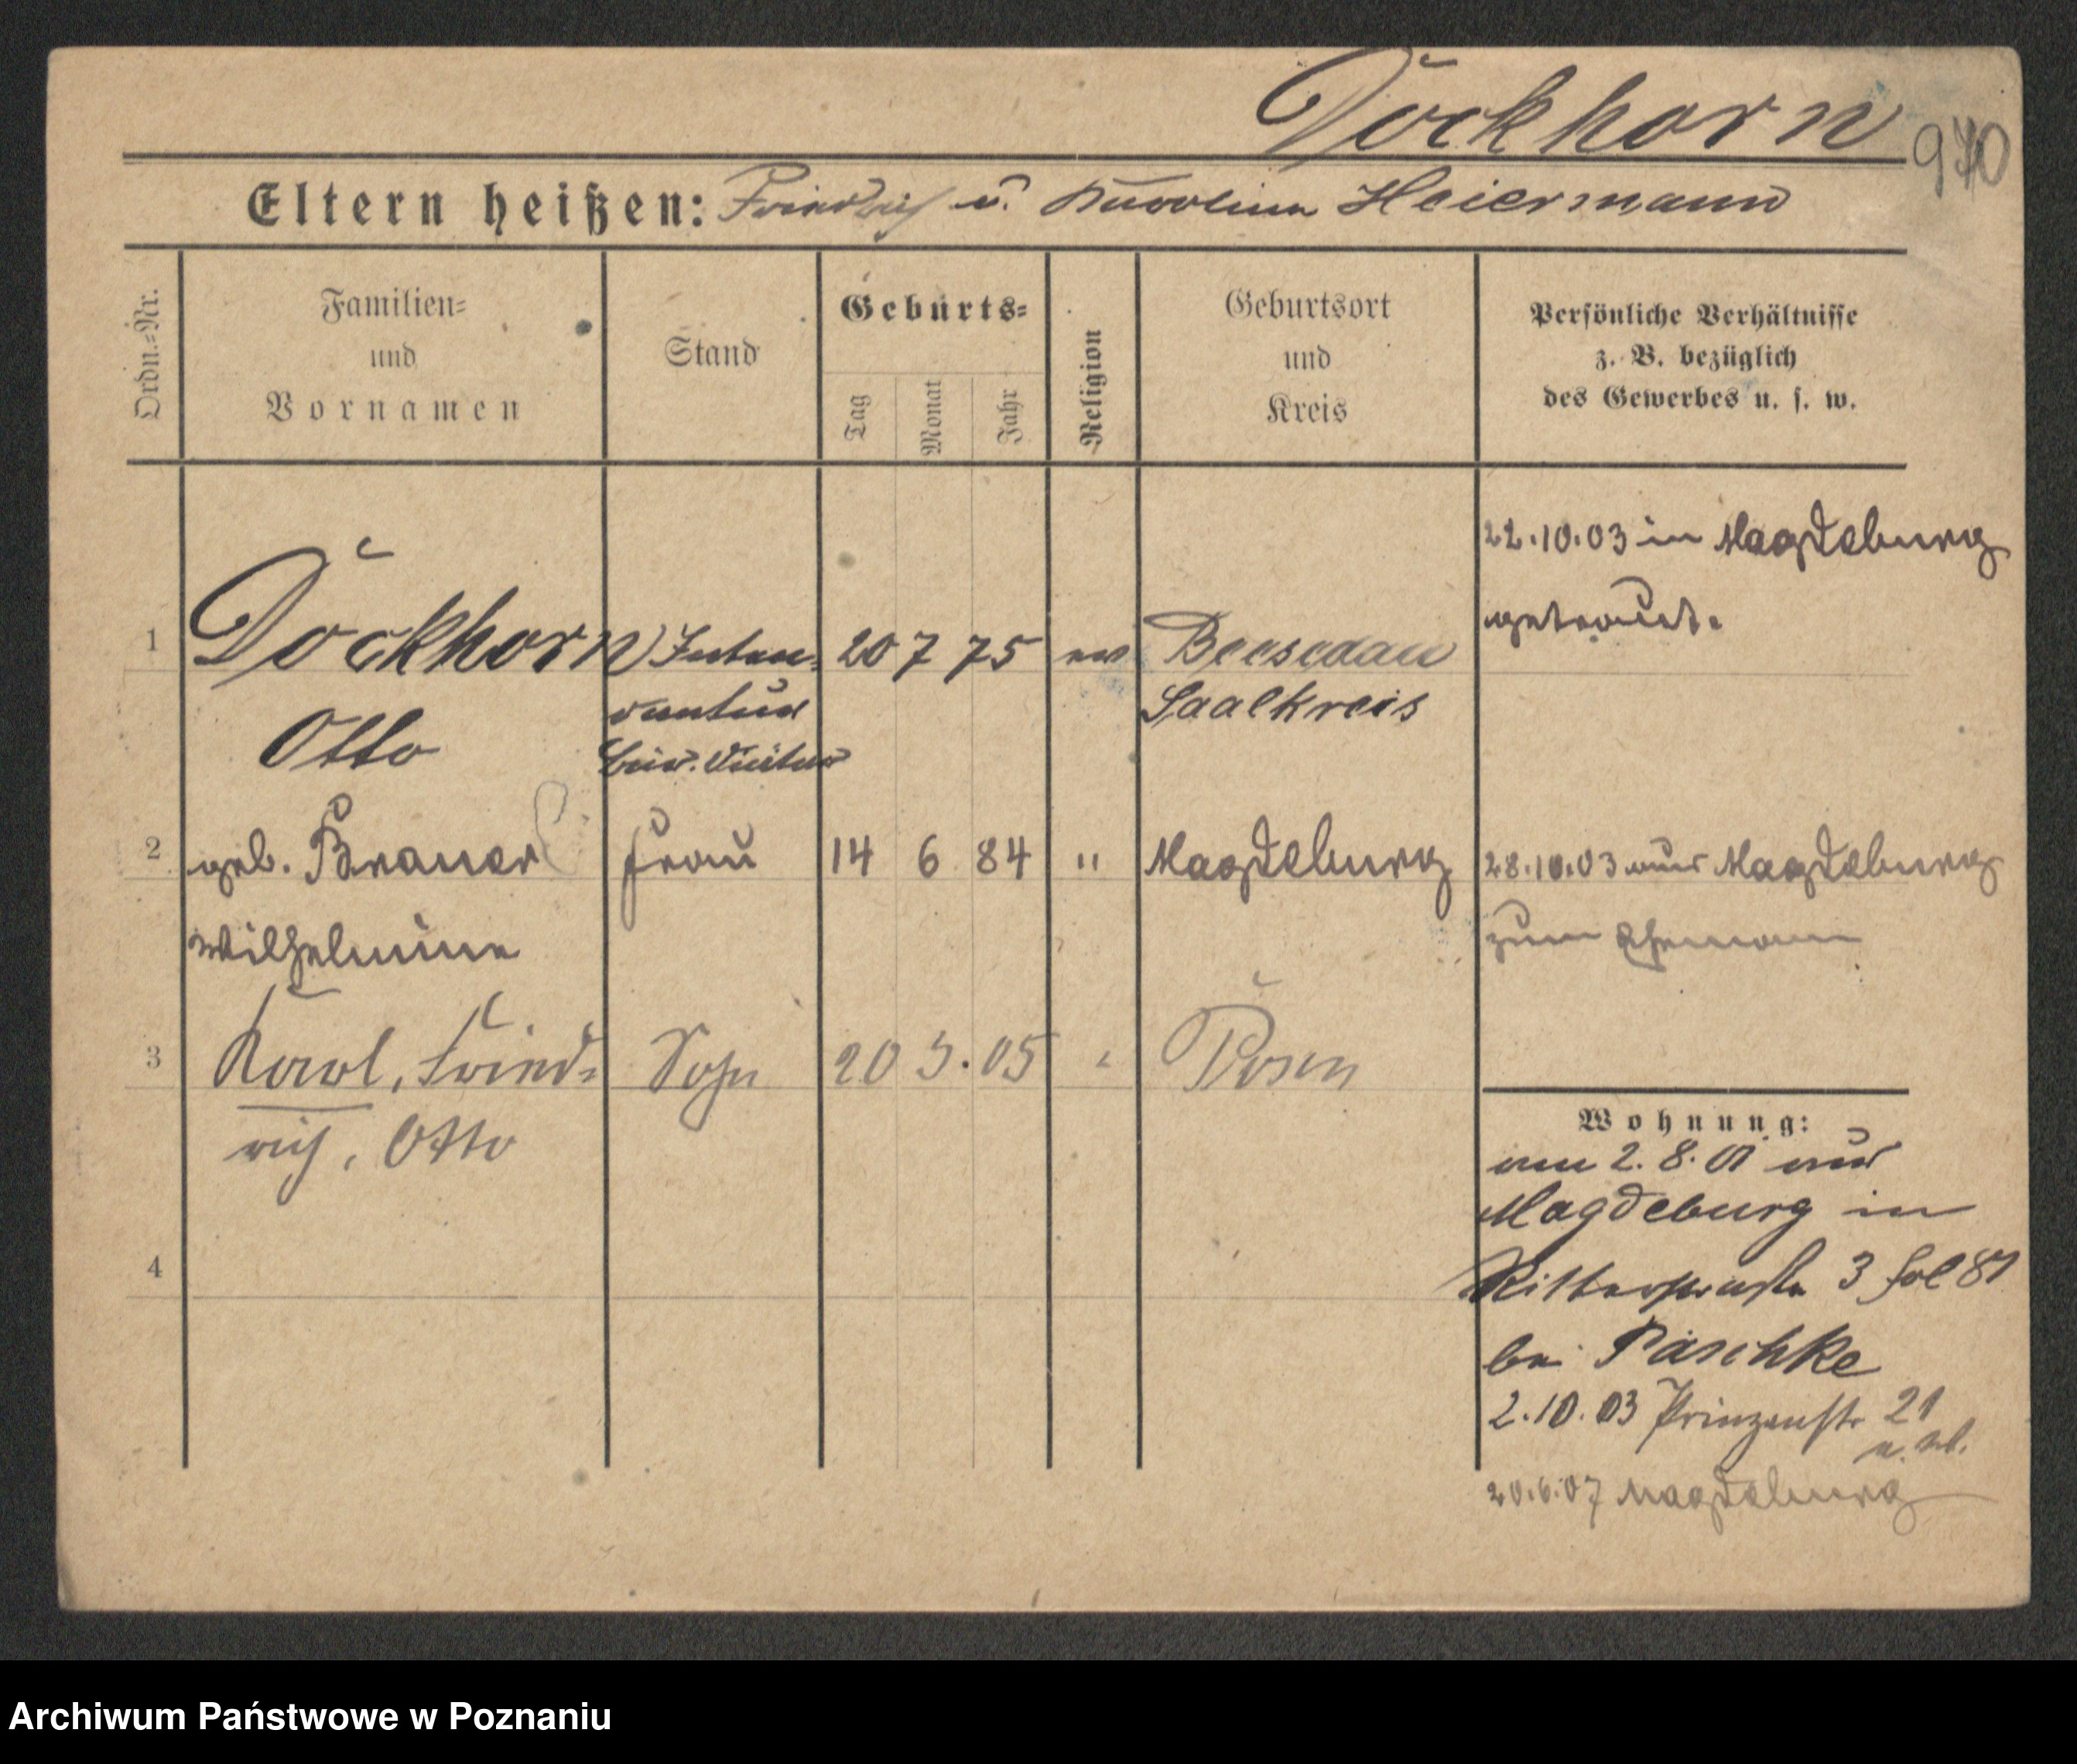 Dockhorn
970
Eltern heißen: Friedrich u. Karoline Heiermann
Ordn.-Nr.
Familien-
und
Vornamen
Stand
Geburts-
Tag
Monat
Jahr
Religion
Geburtsort
und
Kreis
Persönliche Verhältnisse
z. B. bezüglich
des Gewerbes u. s. w.
22.10.03 in Magdeburg
getraut.
1 Dockhorn Inten- 20 7 75 ev Beesedau
Otto dantur Saalkreis
2 geb. Brauer Frau 14 6 84 " Magdeburg 28.10.03 aus Magdeburg
Wilhelmine zum Ehemann
3 Karl, Fried- Sohn 20 3. 05 " Posen
rich, Otto
Wohnung:
am 2. 8. 01 aus
Magdeburg in
Ritterstraße 3 fol 81
bei Paschke
2.10.03 Prinzenstr 21
20.6.07 Magdeburg
4
Archiwum Państwowe w Poznaniu